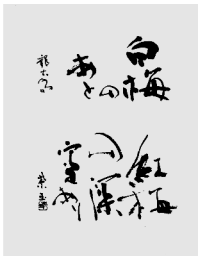 白梅
の
あと
紅梅
の深
空あり